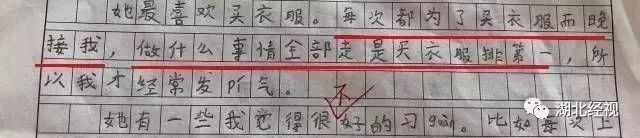 她最喜欢买衣服。每次都为了买衣服而晚
接我，做什么事情全部走是买衣服排第一，所
以我才经常发pí气。
不
她有一些我觉得很好的习guàn。比如每次上
湖北经视